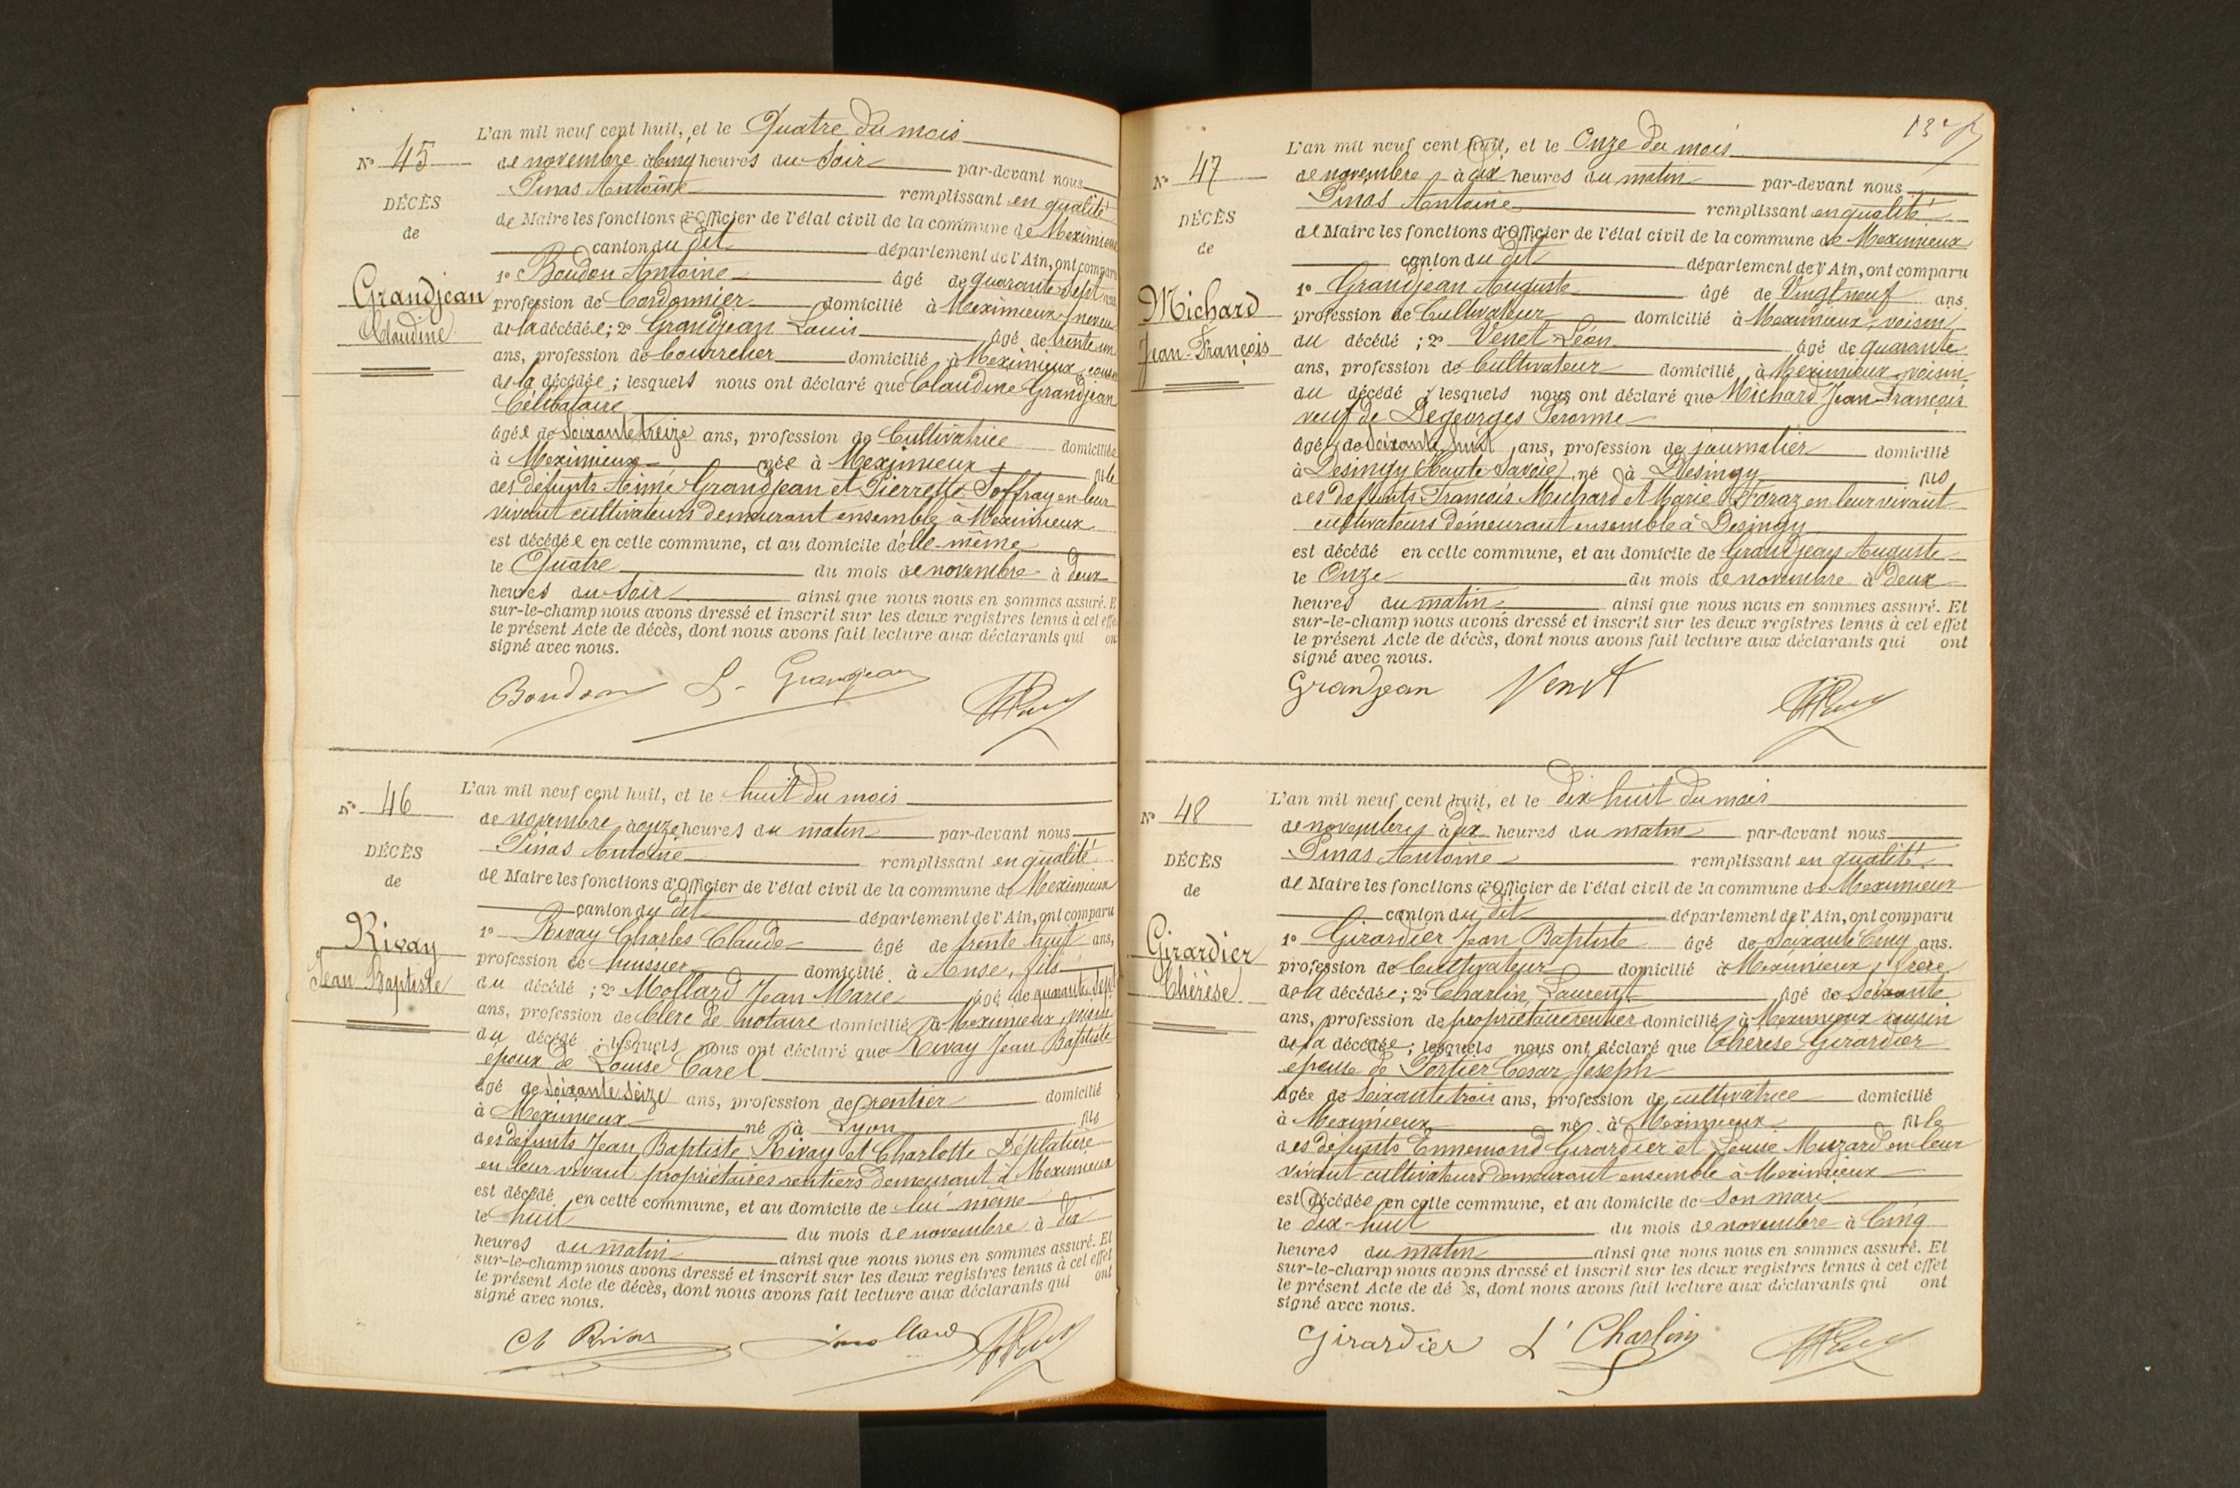 L'an mil neuf cent huit, et le Quatre du mois
N° 45
de novembre à cinq heures du soir par-devant nous
Pinas Antoine remplissant en qualité
DÉCÈS
de Maire les fonctions d'Officier de l'état civil de la commune de Meximieux
de
canton du dit département de l'Ain, ont comparu
1° Boudon Antoine âgé de quarante sept ans
Grandjean
profession de Cordonnier domicilié à Meximieux, neveu
Claudine
de la décédée; 2° Grandjean Louis âgé de trente un
ans, profession de bourrelier domicilié à Meximieux, cousin
de la décédée; lesquels nous ont déclaré que Claudine Grandjean
Célibataire
âgée de soixante treize ans, profession de Cultivatrice domiciliée
à Meximieux née à Meximieux fille
des défunts Aimé Grandjean et Pierrette Joffray en leur
vivant cultivateurs demeurant ensemble à Meximieux
est décédée en cette commune, et au domicile d'elle-même
le Quatre du mois de novembre à deux
heures du soir ainsi que nous nous en sommes assuré. E
sur-le-champ nous avons dressé et inscrit sur les deux registres tenus à cet effe
le présent Acte de décès, dont nous avons fait lecture aux déclarants qui on
signé avec nous.
Boudon L. Grandjean
L'an mil neuf cent huit, et le huit du mois
N° 46
de novembre à onze heures du matin par-devant nous
Pinas Antoine remplissant en qualité
DÉCÈS
de Maire les fonctions d'Officier de l'état civil de la commune de Meximieux
de
canton du dit département de l'Ain, ont comparu
1° Rivay Charles Claude âgé de trente huit ans,
Rivay
profession de huissier domicilié à Anse, fils
Jean Baptiste
du décédé; 2° Mollard Jean Marie âgé de quarante sept
ans, profession de Clerc de notaire domicilié à Meximieux,
du décédé; lesquels nous ont déclaré que Rivay Jean Baptiste
époux de Louise Carel
âgé de soixante seize ans, profession de rentier domicilié
à Meximieux né à Lyon fils
des défunts Jean Baptiste Rivay et Charlotte Déplatière
en leur vivant propriétaires rentiers demeurant à Meximieux
est décédé en cette commune, et au domicile de lui même
le huit du mois de novembre à dix
heures du matin ainsi que nous nous en sommes assuré. Et
sur-le-champ nous avons dressé et inscrit sur les deux registres tenus à cet effet
le présent Acte de décès, dont nous avons fait lecture aux déclarants qui ont
signé avec nous.
Ch Rivay
L'an mil neuf cent huit, et le Onze du mois
N° 47
de novembre à dix heures du matin par-devant nous
Pinas Antoine remplissant en qualité
DÉCÈS
de Maire les fonctions d'Officier de l'état civil de la commune de Meximieux
de
canton du dit département de l'Ain, ont comparu
1° Grandjean Auguste âgé de Vingt neuf ans
Michard
profession de Cultivateur domicilié à Meximieux, voisin
Jean-François
du décédé; 2° Venet Léon âgé de quarante
ans, profession de Cultivateur domicilié à Meximieux, voisin
du décédé lesquels nous ont déclaré que Michard Jean-François
veuf de Degeorges Peronne
âgé de soixante huit ans, profession de journalier domicilié
à Desingy (Haute Savoie), né à Desingy fils
des défunts François Michard et Marie Foraz en leur vivant
cultivateurs demeurant ensemble à Desingy
est décédé en cette commune, et au domicile de Grandjean Auguste
le Onze du mois de novembre à deux
heures du matin ainsi que nous nous en sommes assuré. Et
sur-le-champ nous avons dressé et inscrit sur les deux registres tenus à cet effet
le présent Acte de décès, dont nous avons fait lecture aux déclarants qui ont
signé avec nous.
Grandjean Venet
L'an mil neuf cent huit, et le dix huit du mois
N° 48
de novembre, à dix heures du matin par-devant nous
Pinas Antoine remplissant en qualité
DÉCÈS
de Maire les fonctions d'Officier de l'état civil de la commune de Meximieux
de
canton du dit département de l'Ain, ont comparu
1° Girardier Jean Baptiste âgé de Soixante Cinq ans.
Girardier
profession de Cultivateur domicilié à Meximieux, frère
Thérèse
de la décédée; 2° Charlin Laurent âgé de Soixante
ans, profession de propriétaire rentier domicilié à Meximieux cousin
de la décédée; lesquels nous ont déclaré que Thérèse Girardier
épouse de Portier César Joseph
âgée de Soixante trois ans, profession de cultivatrice domicilié
à Meximieux né à Meximieux fille
des défunts Ennemond Girardier et Louise Muzard en leur
vivant cultivateurs demeurant ensemble à Meximieux
est décédée en cette commune, et au domicile de son mari
le dix-huit du mois de novembre à Cinq
heures du matin ainsi que nous nous en sommes assuré. Et
sur-le-champ nous avons dressé et inscrit sur les deux registres tenus à cet effet
le présent Acte de dé s, dont nous avons fait lecture aux déclarants qui ont
signé avec nous.
Girardier L' Charlin